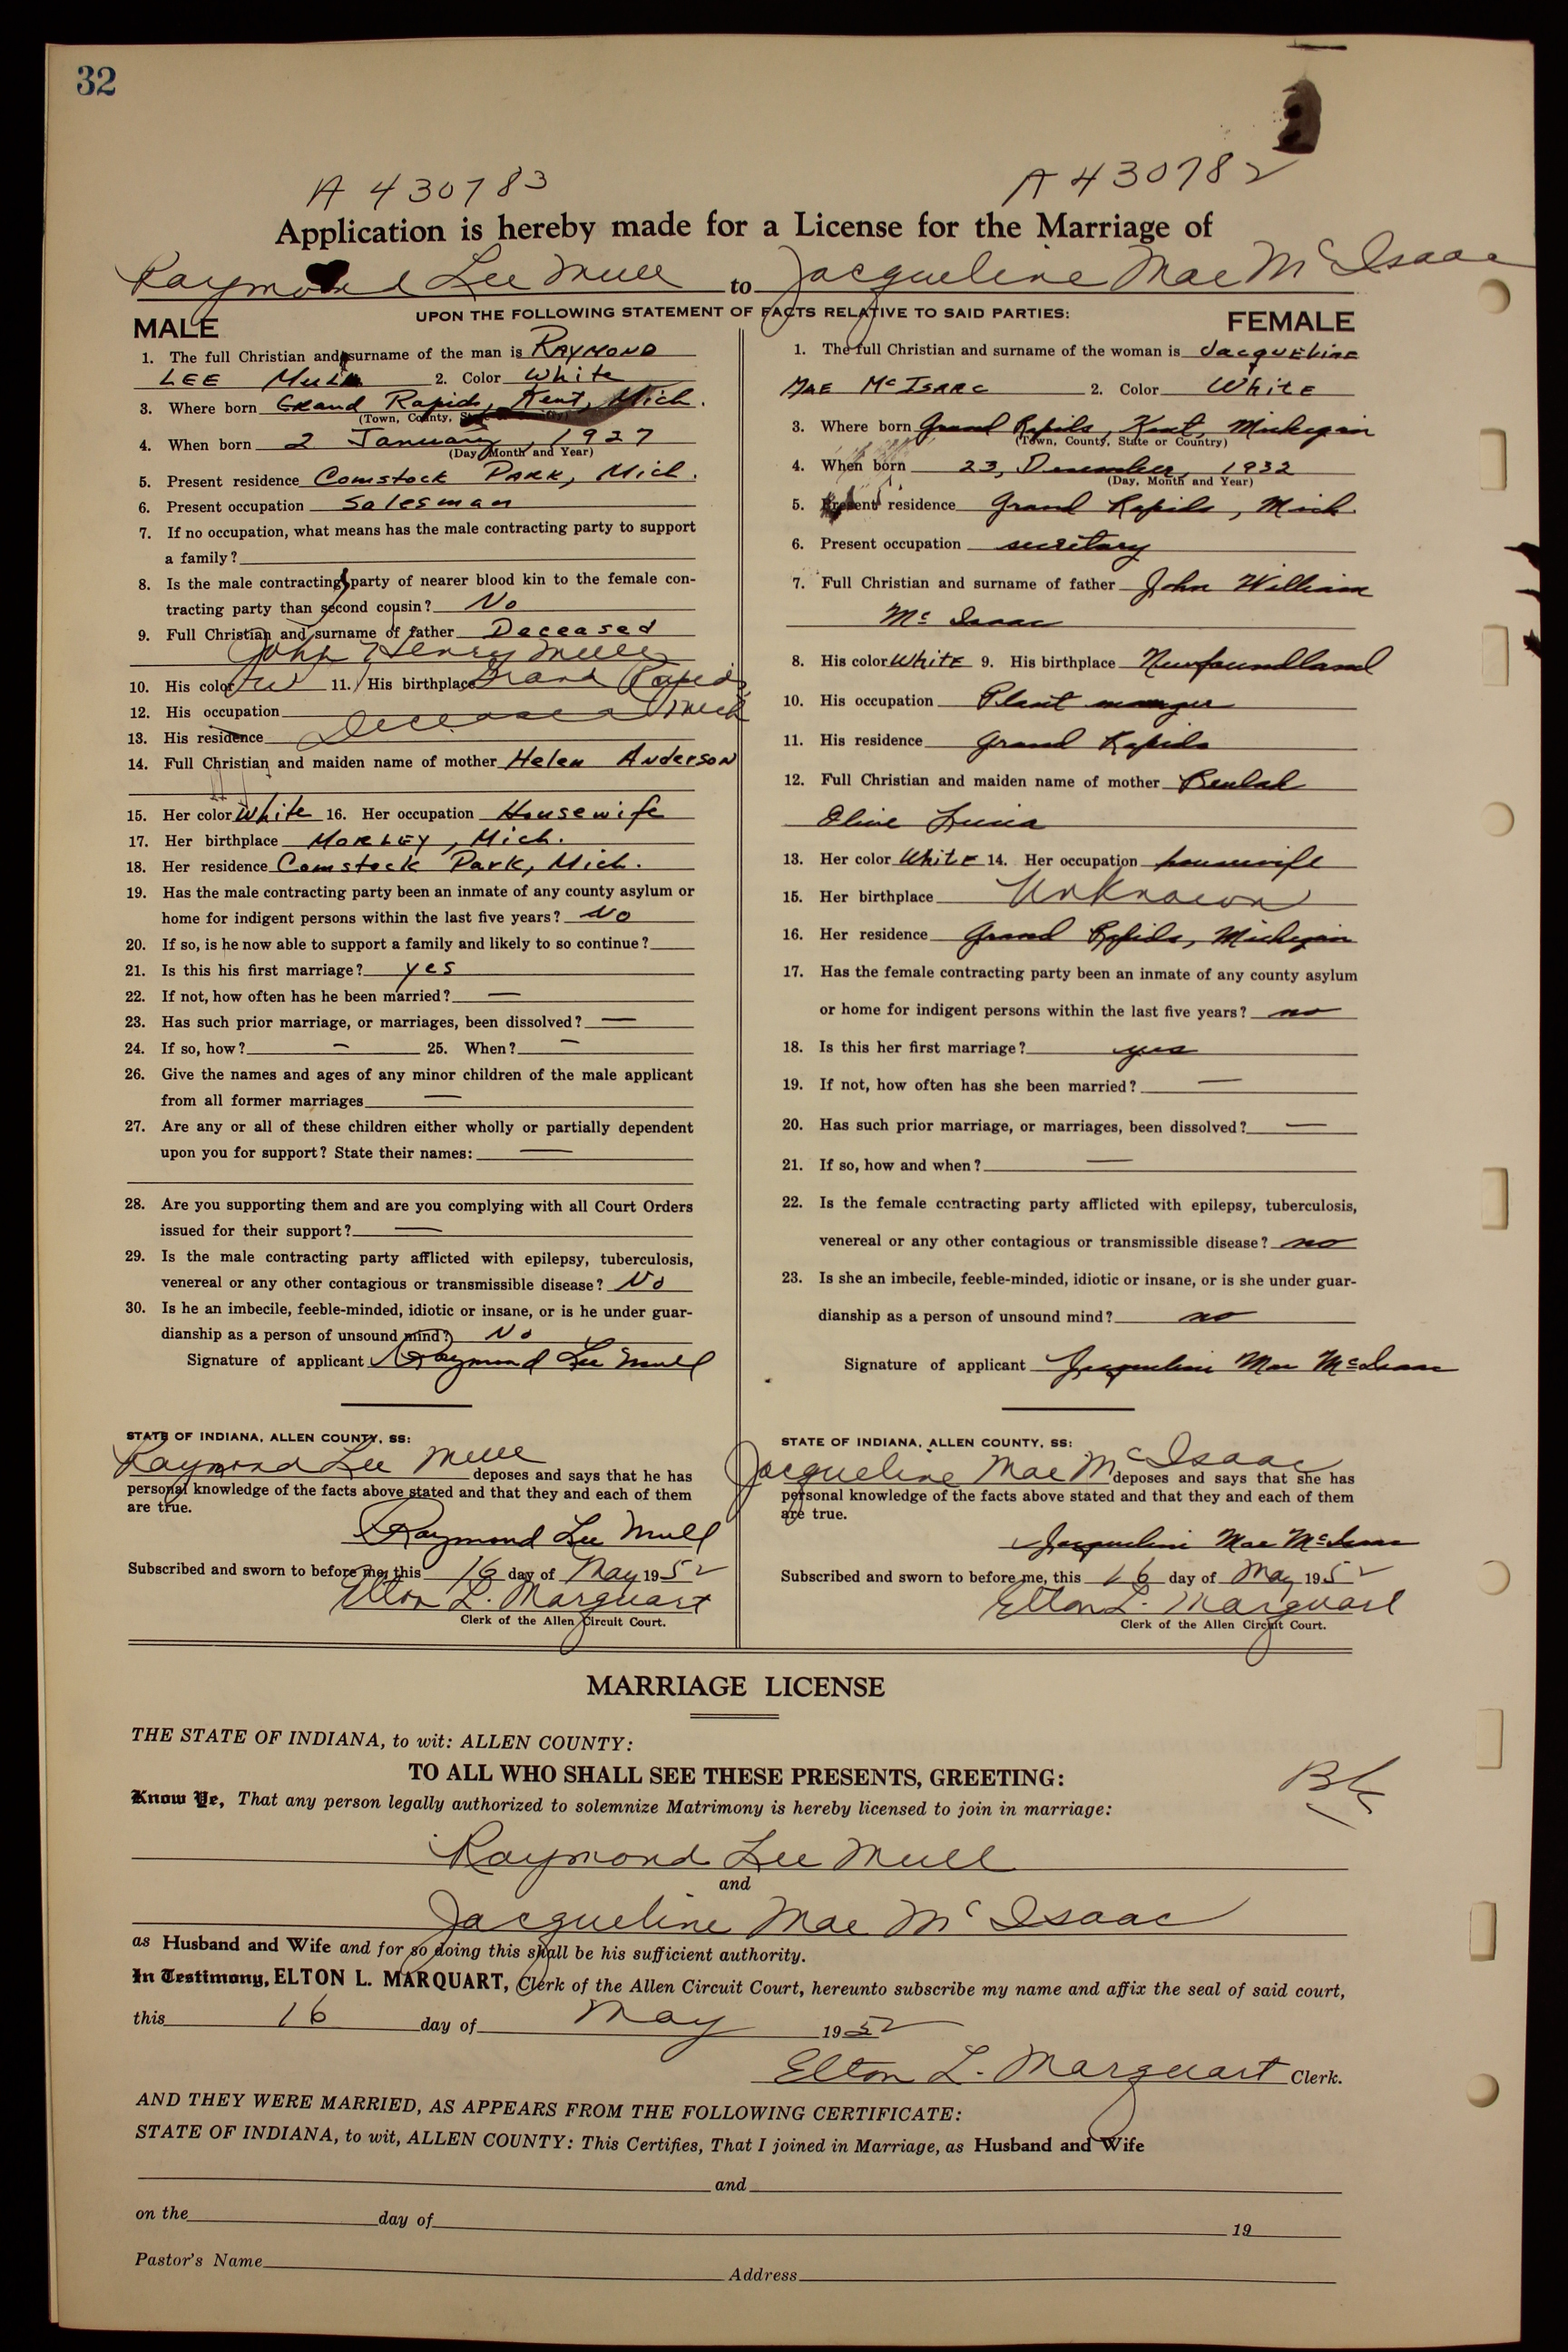 32
A 430783 A 430782
Application is hereby made for a License for the Marriage of
Raymond Lee Mull to Jacqueline Mae McIsaac
UPON THE FOLLOWING STATEMENT OF FACTS RELATIVE TO SAID PARTIES:
MALE
1. The full Christian and surname of the man is RAYMOND
LEE Mull 2. Color White
3. Where born Grand Rapids, Kent, Mich.
(Town, County,
4. When born 2 January, 1927
(Day Month and Year)
5. Present residence Comstock Park, Mich.
6. Present occupation Salesman
7. If no occupation, what means has the male contracting party to support
a family?
8. Is the male contracting party of nearer blood kin to the female con-
tracting party than second cousin? No
9. Full Christian and surname of father Deceased
John Henry Mull
10. His color W 11. His birthplace Grand Rapids
12. His occupation Mich
13. His residence Deceased
14. Full Christian and maiden name of mother Helen Anderson
15. Her color White 16. Her occupation Housewife
17. Her birthplace MORLEY, Mich.
18. Her residence Comstock Park, Mich.
19. Has the male contracting party been an inmate of any county asylum or
home for indigent persons within the last five years? No
20. If so, is he now able to support a family and likely to so continue?
21. Is this his first marriage? yes
22. If not, how often has he been married? —
23. Has such prior marriage, or marriages, been dissolved? —
24. If so, how? — 25. When? —
26. Give the names and ages of any minor children of the male applicant
from all former marriages —
27. Are any or all of these children either wholly or partially dependent
upon you for support? State their names: —
28. Are you supporting them and are you complying with all Court Orders
issued for their support? —
29. Is the male contracting party afflicted with epilepsy, tuberculosis,
venereal or any other contagious or transmissible disease? No
30. Is he an imbecile, feeble-minded, idiotic or insane, or is he under guar-
dianship as a person of unsound mind? No
Signature of applicant Raymond Lee Mull
STATE OF INDIANA, ALLEN COUNTY, SS:
Raymond Lee Mull deposes and says that he has
personal knowledge of the facts above stated and that they and each of them
are true.
Raymond Lee Mull
Subscribed and sworn to before me, this 16 day of May 1952
Elton L. Marquart
Clerk of the Allen Circuit Court.
FEMALE
1. The full Christian and surname of the woman is Jacqueline
MAE McISAAC 2. Color White
3. Where born Grand Rapids, Kent, Michigan
(Town, County, State or Country)
4. When born 23, December, 1932
(Day, Month and Year)
5. Present residence Grand Rapids, Mich.
6. Present occupation secretary
7. Full Christian and surname of father John William
McIsaac
8. His color White 9. His birthplace Newfoundland
10. His occupation Plant manger
11. His residence Grand Rapids
12. Full Christian and maiden name of mother Beulah
Oline
13. Her color White 14. Her occupation housewife
15. Her birthplace Unknown
16. Her residence Grand Rapids, Michigan
17. Has the female contracting party been an inmate of any county asylum
or home for indigent persons within the last five years? no
18. Is this her first marriage? yes
19. If not, how often has she been married? —
20. Has such prior marriage, or marriages, been dissolved? —
21. If so, how and when? —
22. Is the female contracting party afflicted with epilepsy, tuberculosis,
venereal or any other contagious or transmissible disease? no
23. Is she an imbecile, feeble-minded, idiotic or insane, or is she under guar-
dianship as a person of unsound mind? no
Signature of applicant Jacqueline Mae McIsaac
STATE OF INDIANA, ALLEN COUNTY, SS:
Jacqueline Mae McIsaac deposes and says that she has
personal knowledge of the facts above stated and that they and each of them
are true.
Jacqueline Mae McIsaac
Subscribed and sworn to before me, this 16 day of May 1952
Elton L. Marquart
Clerk of the Allen Circuit Court.
MARRIAGE LICENSE
THE STATE OF INDIANA, to wit: ALLEN COUNTY:
TO ALL WHO SHALL SEE THESE PRESENTS, GREETING:
Know Ye, That any person legally authorized to solemnize Matrimony is hereby licensed to join in marriage:
Raymond Lee Mull
and
Jacqueline Mae McIsaac
as Husband and Wife and for so doing this shall be his sufficient authority.
In Testimony, ELTON L. MARQUART, Clerk of the Allen Circuit Court, hereunto subscribe my name and affix the seal of said court,
this 16 day of May 1952
Elton L. Marquart Clerk.
AND THEY WERE MARRIED, AS APPEARS FROM THE FOLLOWING CERTIFICATE:
STATE OF INDIANA, to wit, ALLEN COUNTY: This Certifies, That I joined in Marriage, as Husband and Wife
and
on the day of 19
Pastor's Name Address